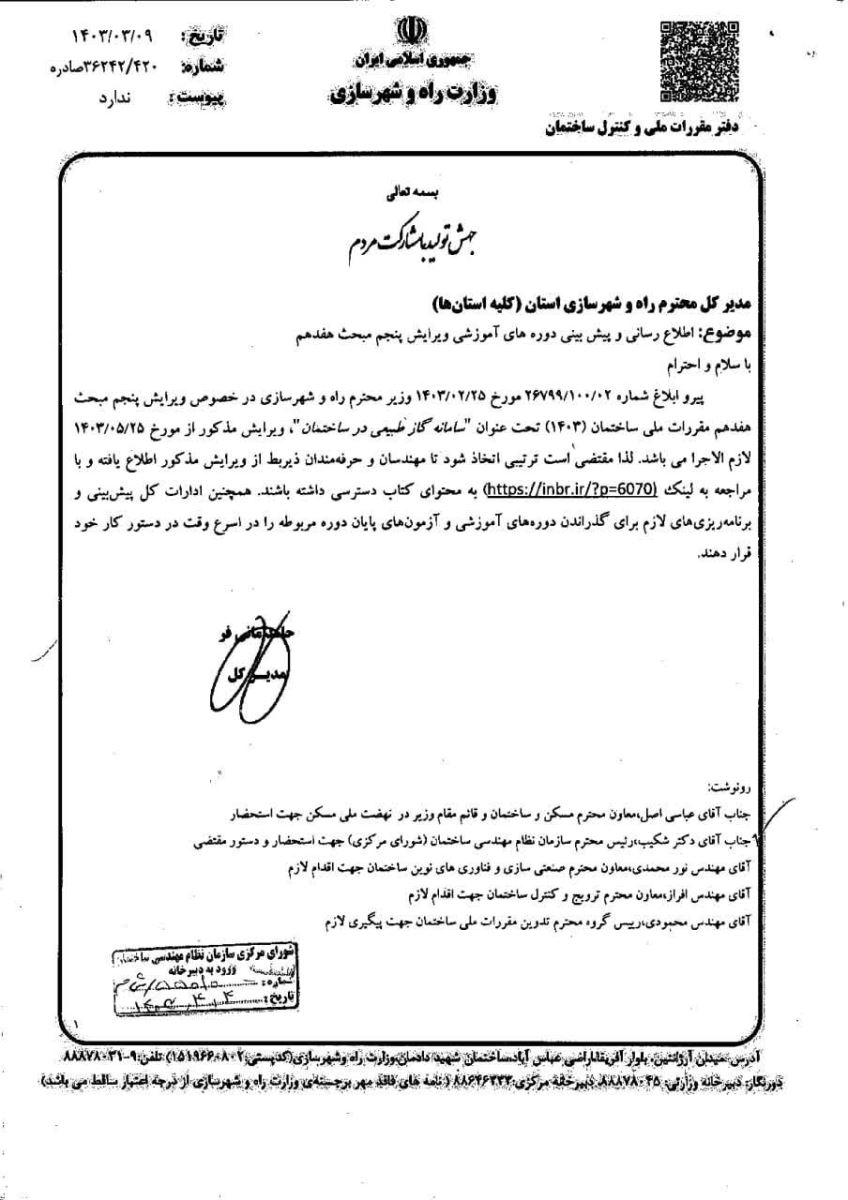 تاریخ: ۱۴۰۳/۰۳/۰۹
شماره: ۳۶۲۴۲/۴۲۰صادره
پیوست: ندارد
جمهوری اسلامی ایران
وزارت راه و شهرسازی
دفتر مقررات ملی و کنترل ساختمان
بسمه تعالی
جهش تولید با مشارکت مردم
مدیر کل محترم راه و شهرسازی استان (کلیه استان‌ها)
موضوع: اطلاع رسانی و پیش بینی دوره های آموزشی ویرایش پنجم مبحث هفدهم
با سلام و احترام
پیرو ابلاغ شماره ۲۶۷۹۹/۱۰۰/۰۲ مورخ ۱۴۰۳/۰۲/۲۵ وزیر محترم راه و شهرسازی در خصوص ویرایش پنجم مبحث
هفدهم مقررات ملی ساختمان (۱۴۰۳) تحت عنوان "سامانه گاز طبیعی در ساختمان"، ویرایش مذکور از مورخ ۱۴۰۳/۰۵/۲۵
لازم الاجرا می باشد. لذا مقتضی است ترتیبی اتخاذ شود تا مهندسان و حرفه‌مندان ذیربط از ویرایش مذکور اطلاع یافته و با
مراجعه به لینک (https://inbr.ir/?p=6070) به محتوای کتاب دسترسی داشته باشند. همچنین ادارات کل پیش‌بینی و
برنامه‌ریزی‌های لازم برای گذراندن دوره‌های آموزشی و آزمون‌های پایان دوره مربوطه را در اسرع وقت در دستور کار خود
قرار دهند.
حامد مانی فر
مدیر کل
رونوشت:
جناب آقای عباسی اصل،معاون محترم مسکن و ساختمان و قائم مقام وزیر در نهضت ملی مسکن جهت استحضار
جناب آقای دکتر شکیب،رئیس محترم سازمان نظام مهندسی ساختمان (شورای مرکزی) جهت استحضار و دستور مقتضی
آقای مهندس نور محمدی،معاون محترم صنعتی سازی و فناوری های نوین ساختمان جهت اقدام لازم
آقای مهندس افراز،معاون محترم ترویج و کنترل ساختمان جهت اقدام لازم
آقای مهندس محمودی،رییس گروه محترم تدوین مقررات ملی ساختمان جهت پیگیری لازم
شورای مرکزی سازمان نظام مهندسی ساختمان
ورود به دبیرخانه
شماره:
تاریخ:
۱
آدرس:میدان آرژانتین، بلوار آفریقا،اراضی عباس آباد،ساختمان شهید دادمان،وزارت راه وشهرسازی(کدپستی:۱۵۱۹۶۶۰۸۰۲) تلفن:۹-۸۸۸۷۸۰۳۱
دورنگار: دبیرخانه وزارتی: ۸۸۸۷۸۰۴۵، دبیرخانه مرکزی:۸۸۶۴۶۳۳۳ (نامه های فاقد مهر برجسته‌ی وزارت راه و شهرسازی از درجه اعتبار ساقط می باشد)